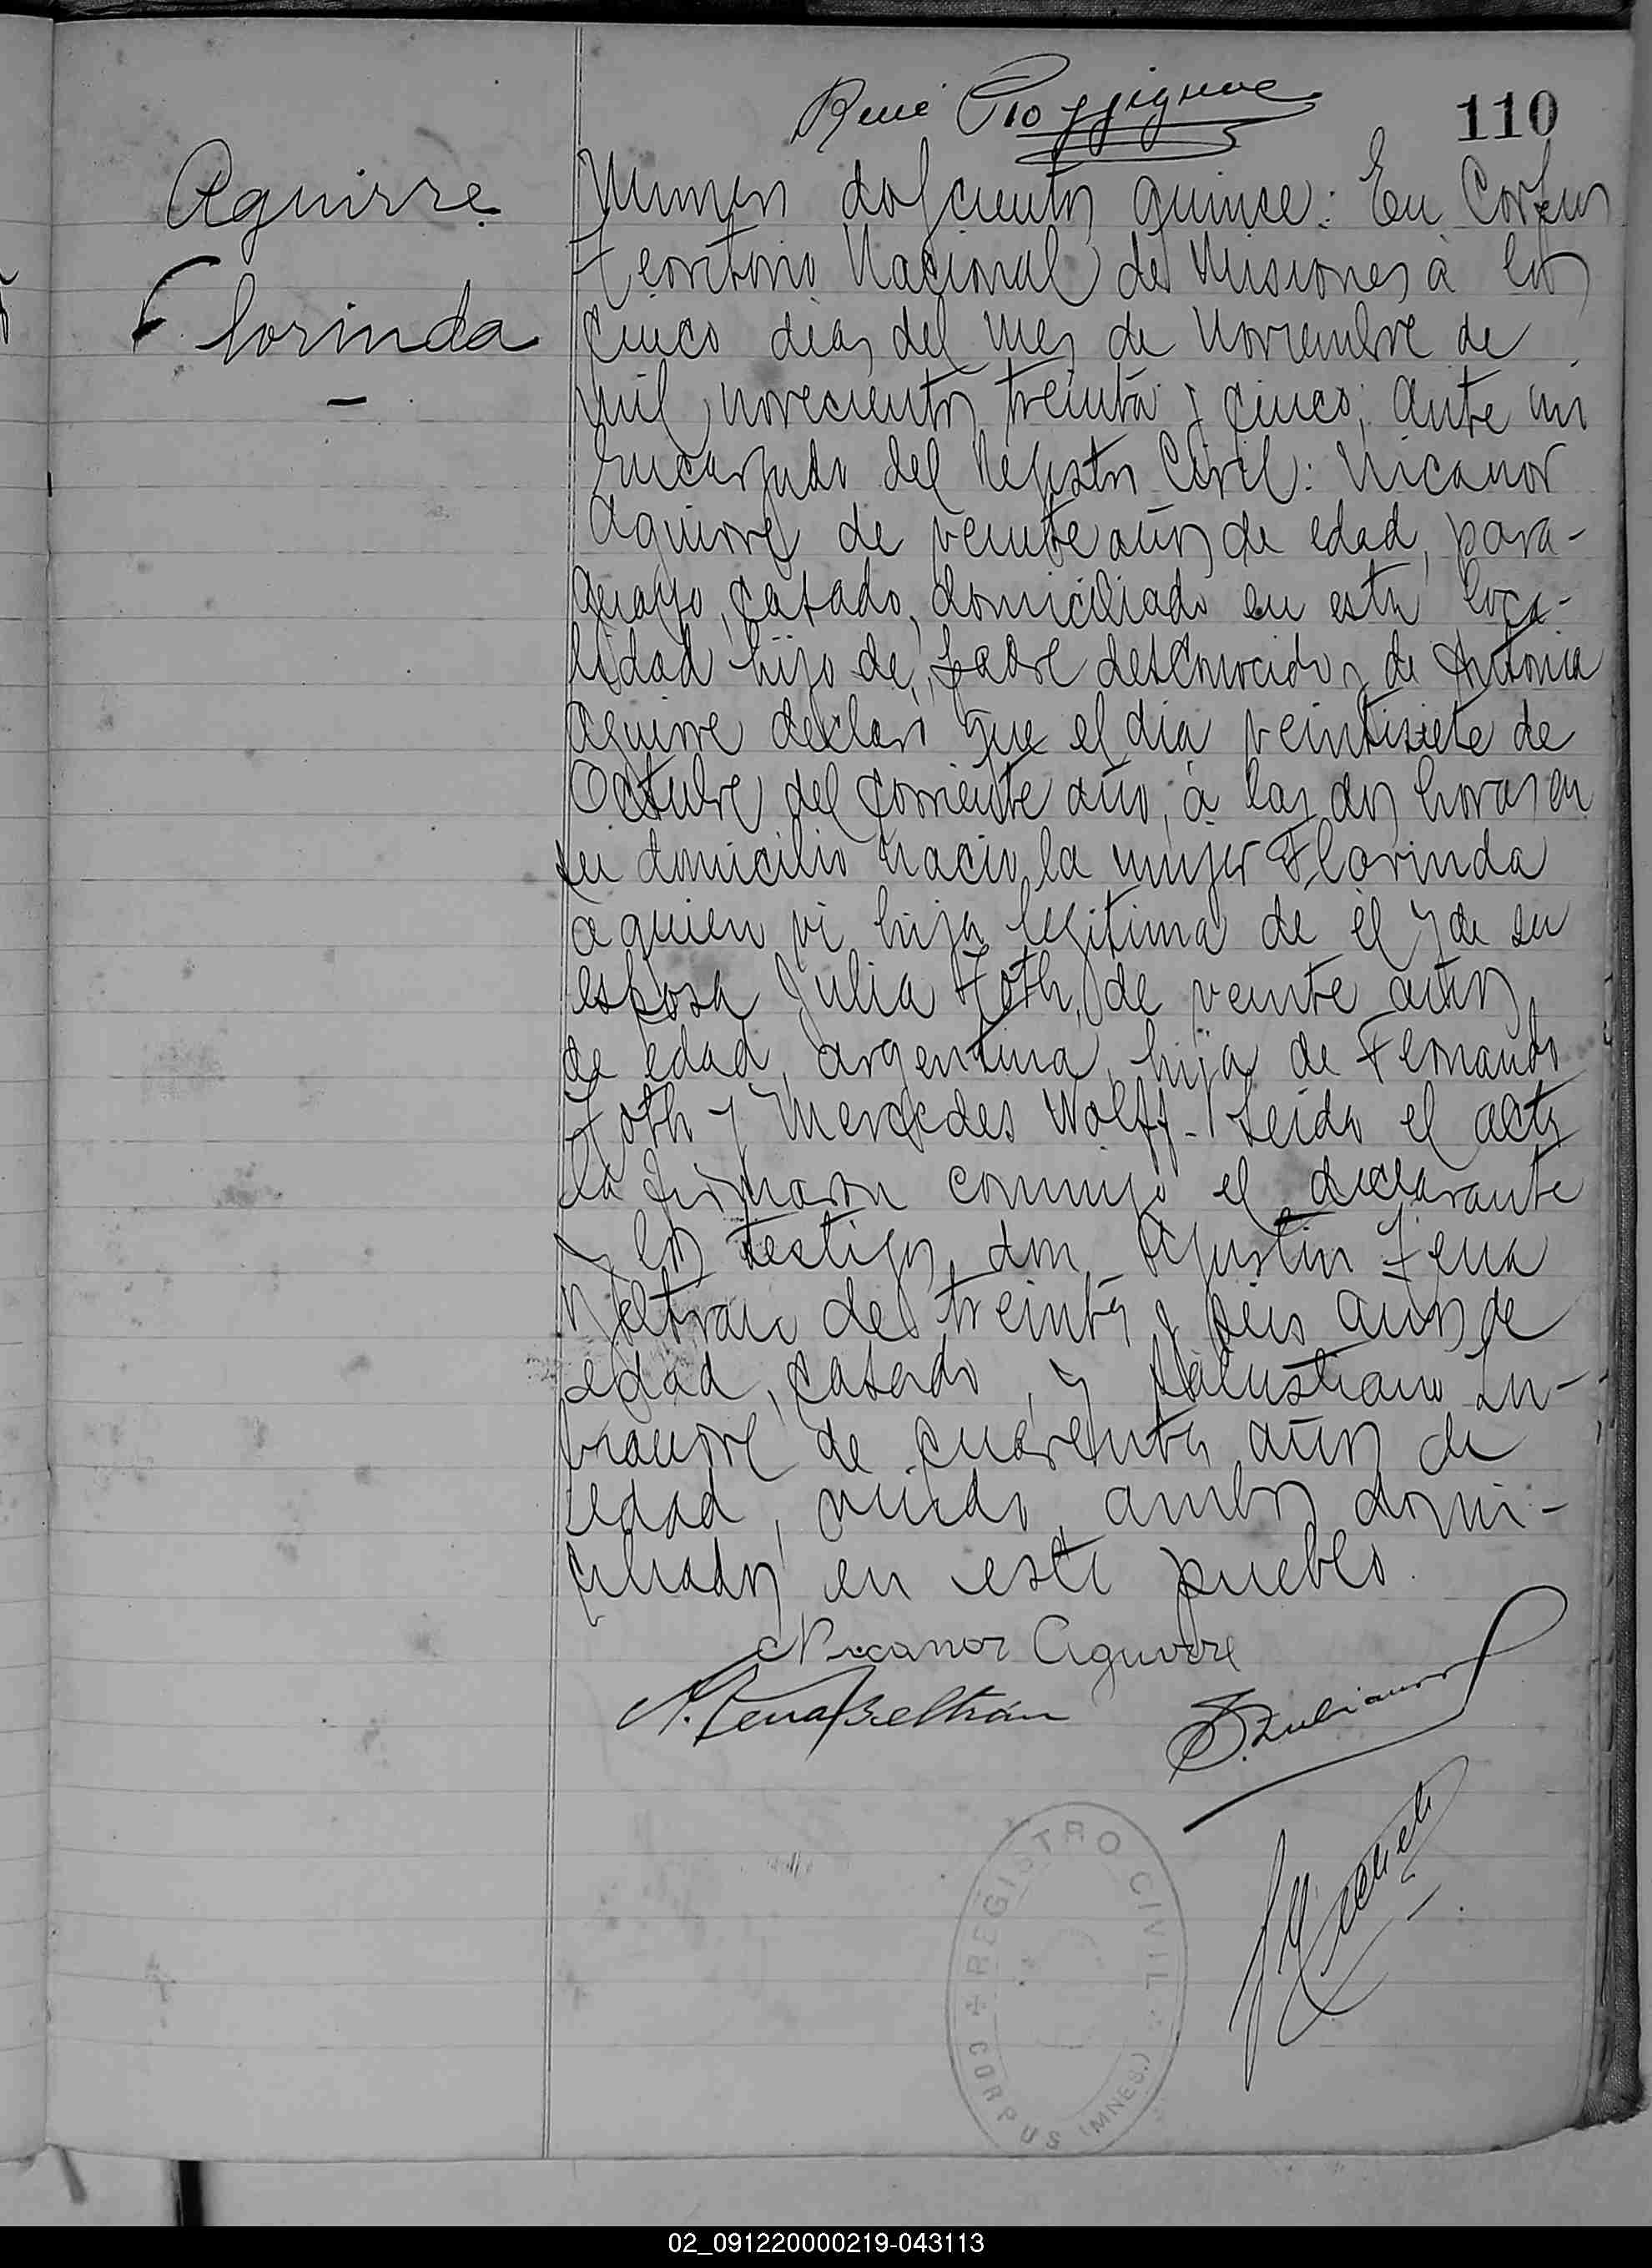 René Pioggignue
110
Aguirre
Florinda
Numero doscientos quince: En Corpus
Territorio Nacional de Misiones à los
cinco dias del mes de Noviembre de
mil novecientos treinta y cinco, ante mi
Encargado del Registro Civil: Nicanor
Aguirre de veinte años de edad, para-
guayo, casado, domiciliado en esta loca-
lidad hijo de padre desconocido y de Antonia
Aguirre declaró que el dia veintisiete de
Octubre del corriente año, à las dos horas en
su domicilio nacio la mujer Florinda
a quien vi hija legitima de el y de su
esposa Julia Foth, de veinte años
de edad, argentina, hija de Fernando
Foth y Mercedes Wolff. Leida el acta
la firmaron conmigo el declarante
y los testigos don Agustin Lena
Beltran de treinta y seis años de
edad, casado, y Salustiano Zu-
biaurre de cuarenta años de
edad, viudo, ambos domi-
ciliados en este pueblo.
Nicanor Aguirre
A. Lena Beltrán
S. Zubiaurre
REGISTRO CIVIL
CORPUS (MNES.)
02_091220000219-043113